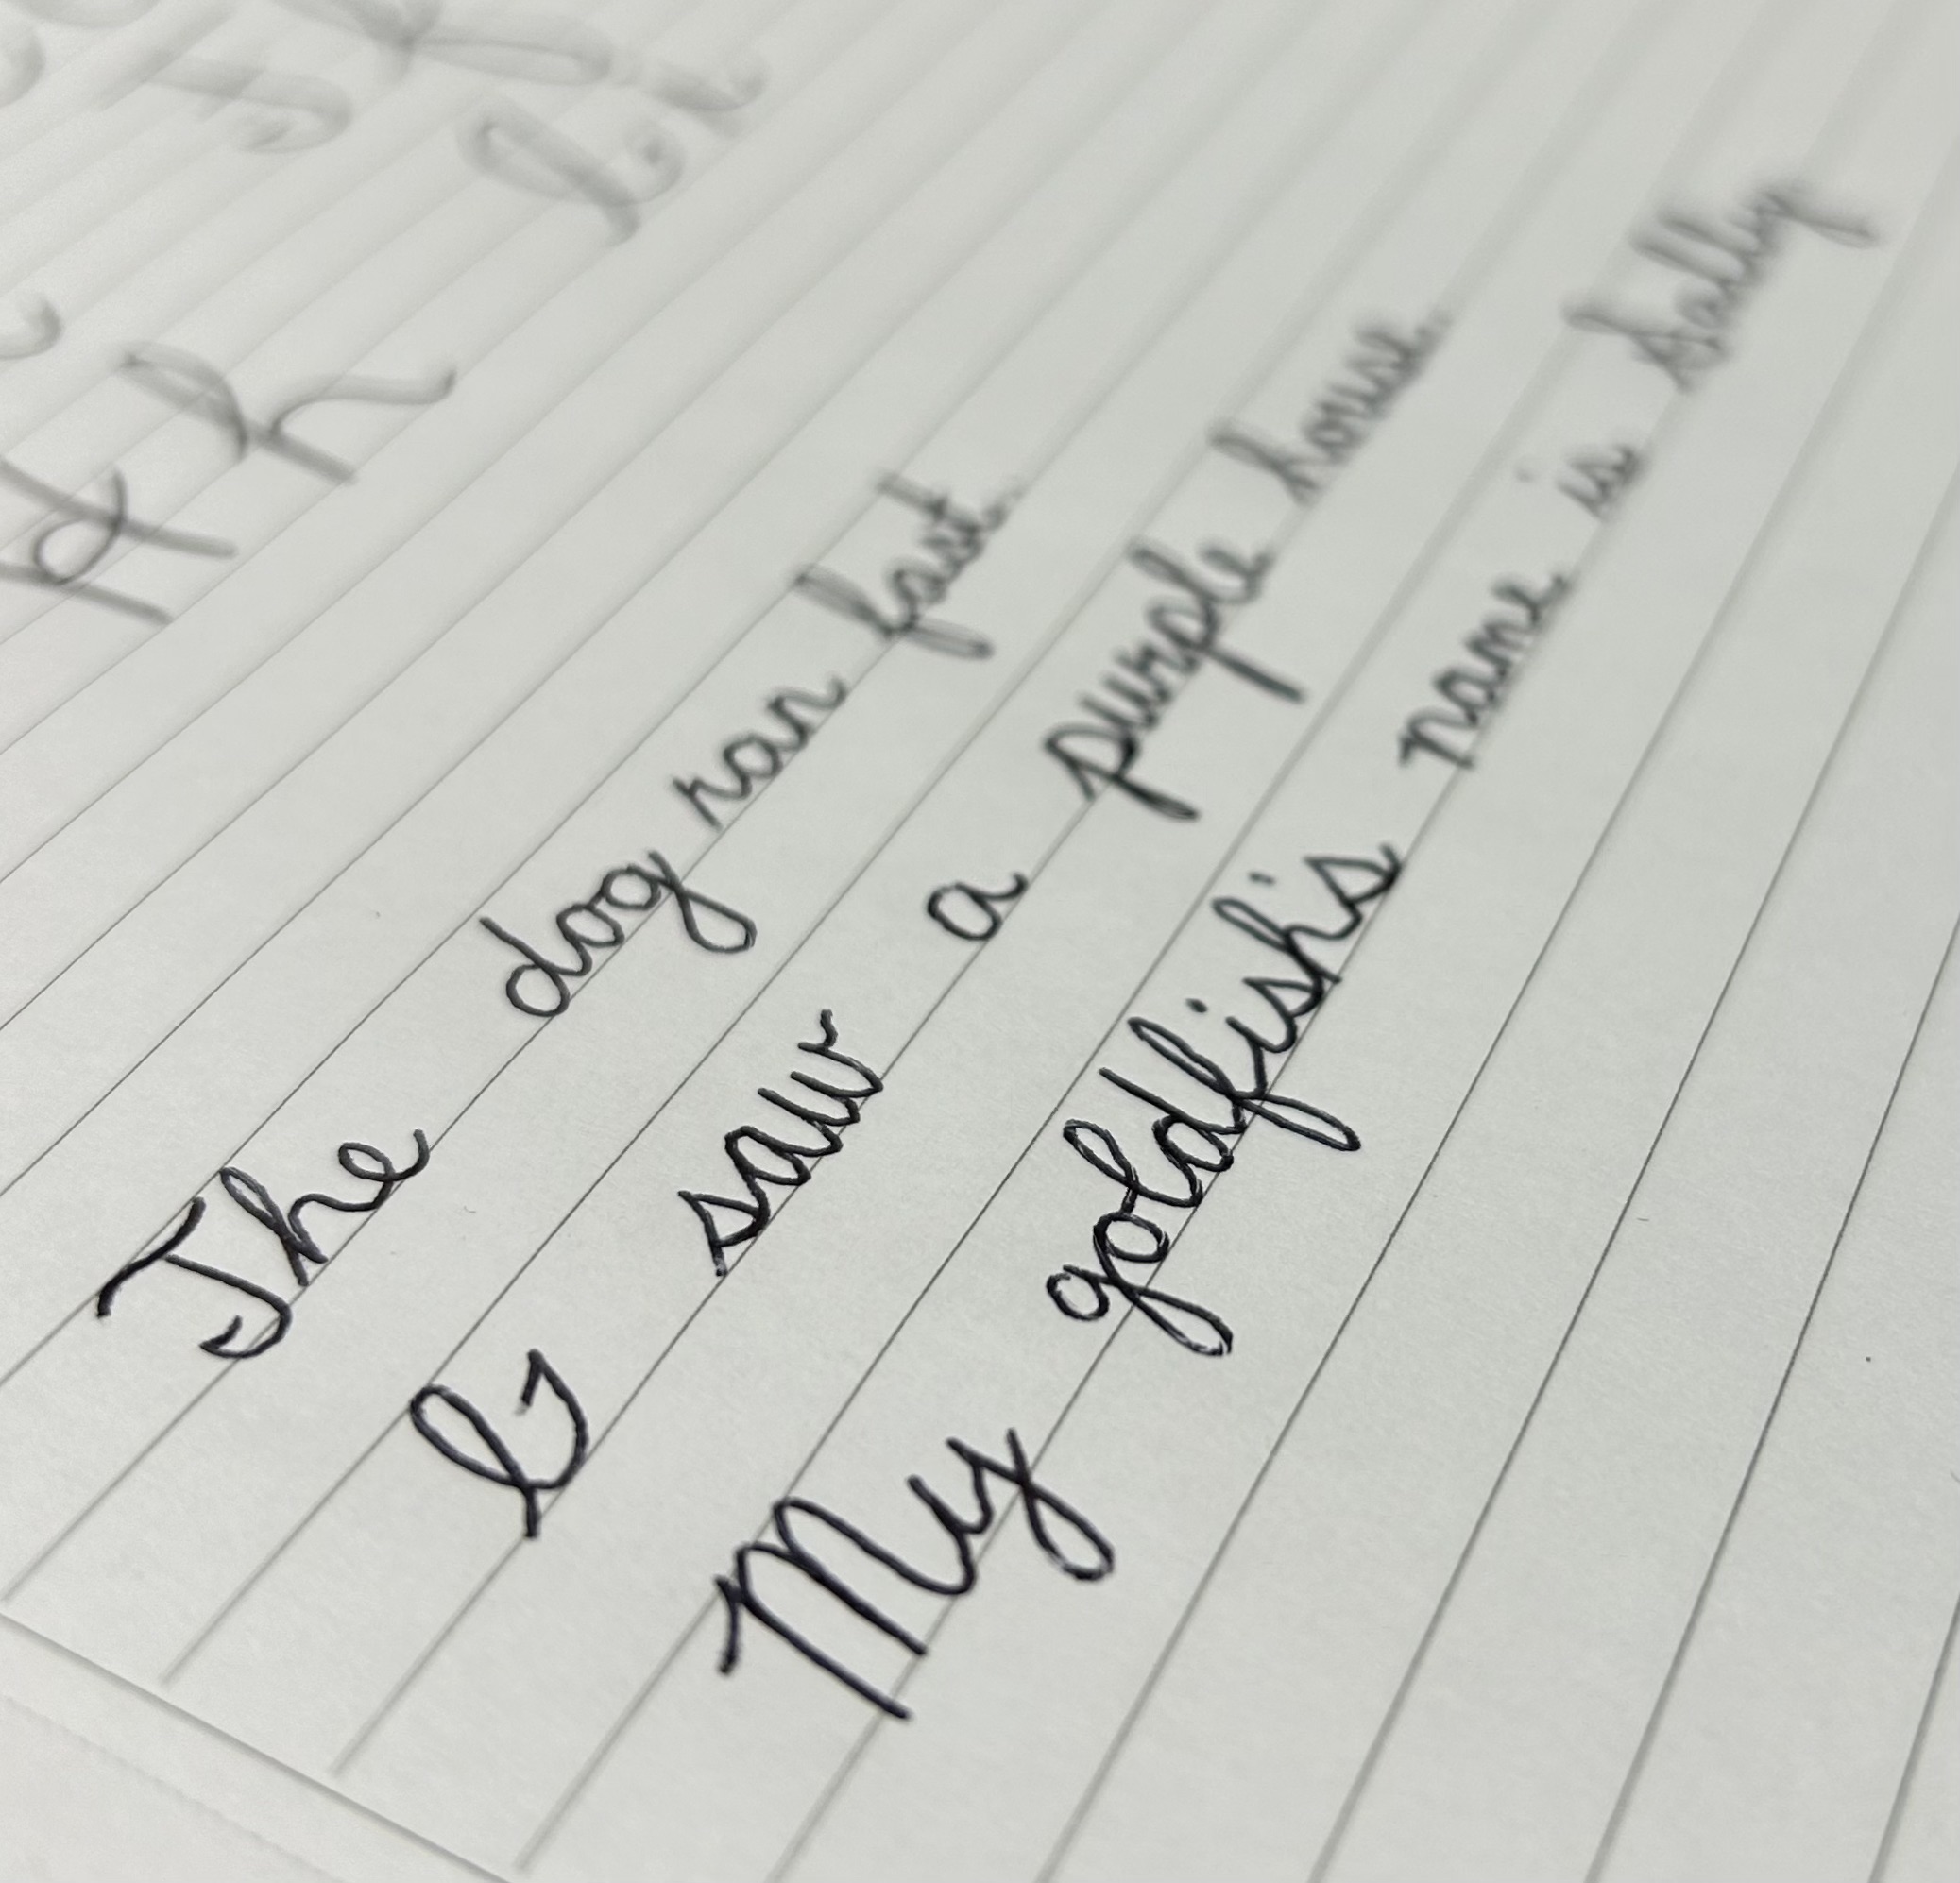 H h
The dog ran fast.
I saw a purple house.
My goldfish's name is Sally